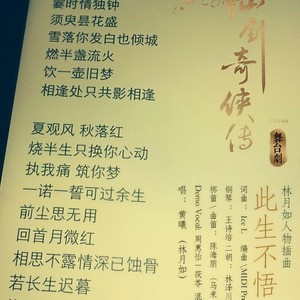 霎时情独钟
须臾昙花盛
雪落你发白也倾城
燃半盏流火
饮一壶旧梦
相逢处只共影相逢
夏观风 秋落红
烧半生只换你心动
执我痛 筑你梦
一诺一誓可过余生
前尘思无用
回首月微红
相思不露情深已蚀骨
若长生迟暮
仙剑奇侠传
舞台剧
林月如人物插曲
此生不悟
词曲:Ice L. 编曲/MIDI Pr
钢琴:王诗培 二胡:林泽
梆笛/曲笛:陈海朋(马来
Demo Vocal:周惠怡 茯苓 混
唱:黄曦(林月如)